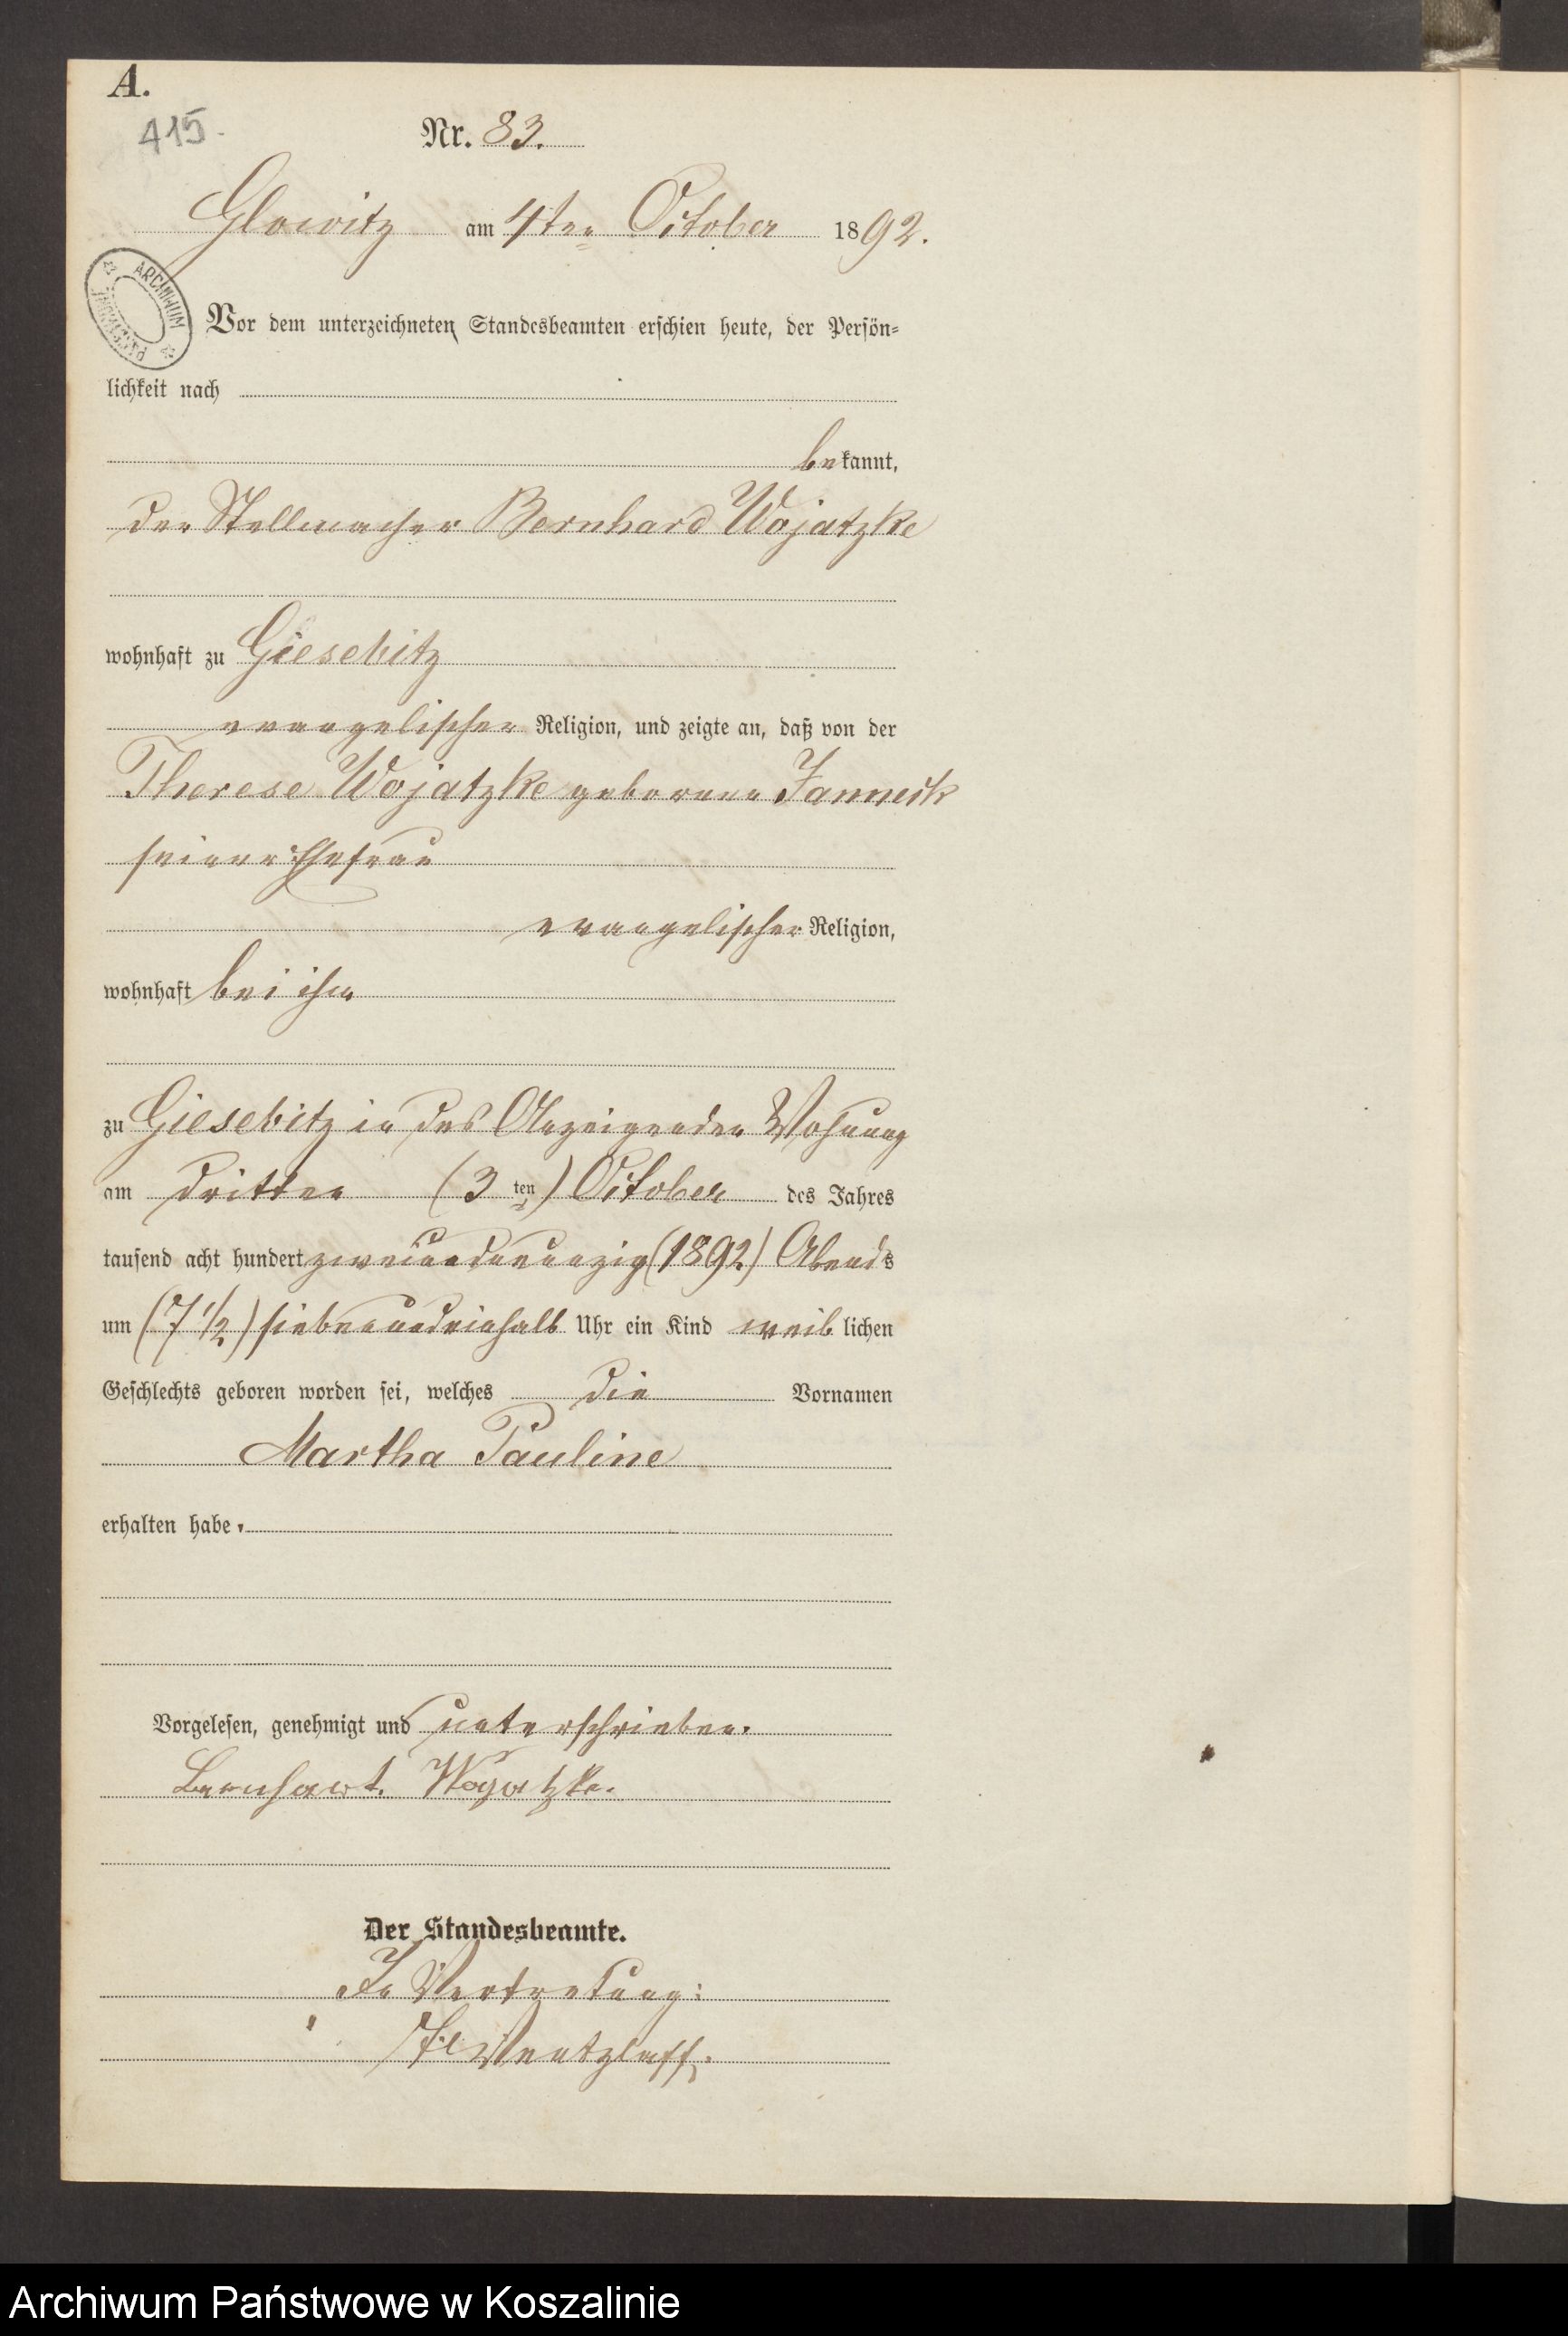 A.
415.
Nr. 83.
Glowitz am 4ten October 1892.
ARCHIWUM PAŃSTWOWE
Vor dem unterzeichneten Standesbeamten erschien heute, der Persön-
lichkeit nach
bekannt,
der Stellmacher Bernhard Wojatzke
wohnhaft zu Giesebitz
evangelischer Religion, und zeigte an, daß von der
Therese Wojatzke geborene Janneck
seiner Ehefrau
evangelischer Religion,
wohnhaft bei ihm
zu Giesebitz in des Anzeigenden Wohnung
am dritten (3ten) October des Jahres
tausend acht hundert zweiundneunzig (1892) Abends
um (7 1/2) siebenundeinhalb Uhr ein Kind weiblichen
Geschlechts geboren worden sei, welches die Vornamen
Martha Pauline
erhalten habe.
Vorgelesen, genehmigt und unterschrieben.
Bernhart. Wogatzke.
Der Standesbeamte.
In Vertretung:
Wentzlaff.
Archiwum Państwowe w Koszalinie